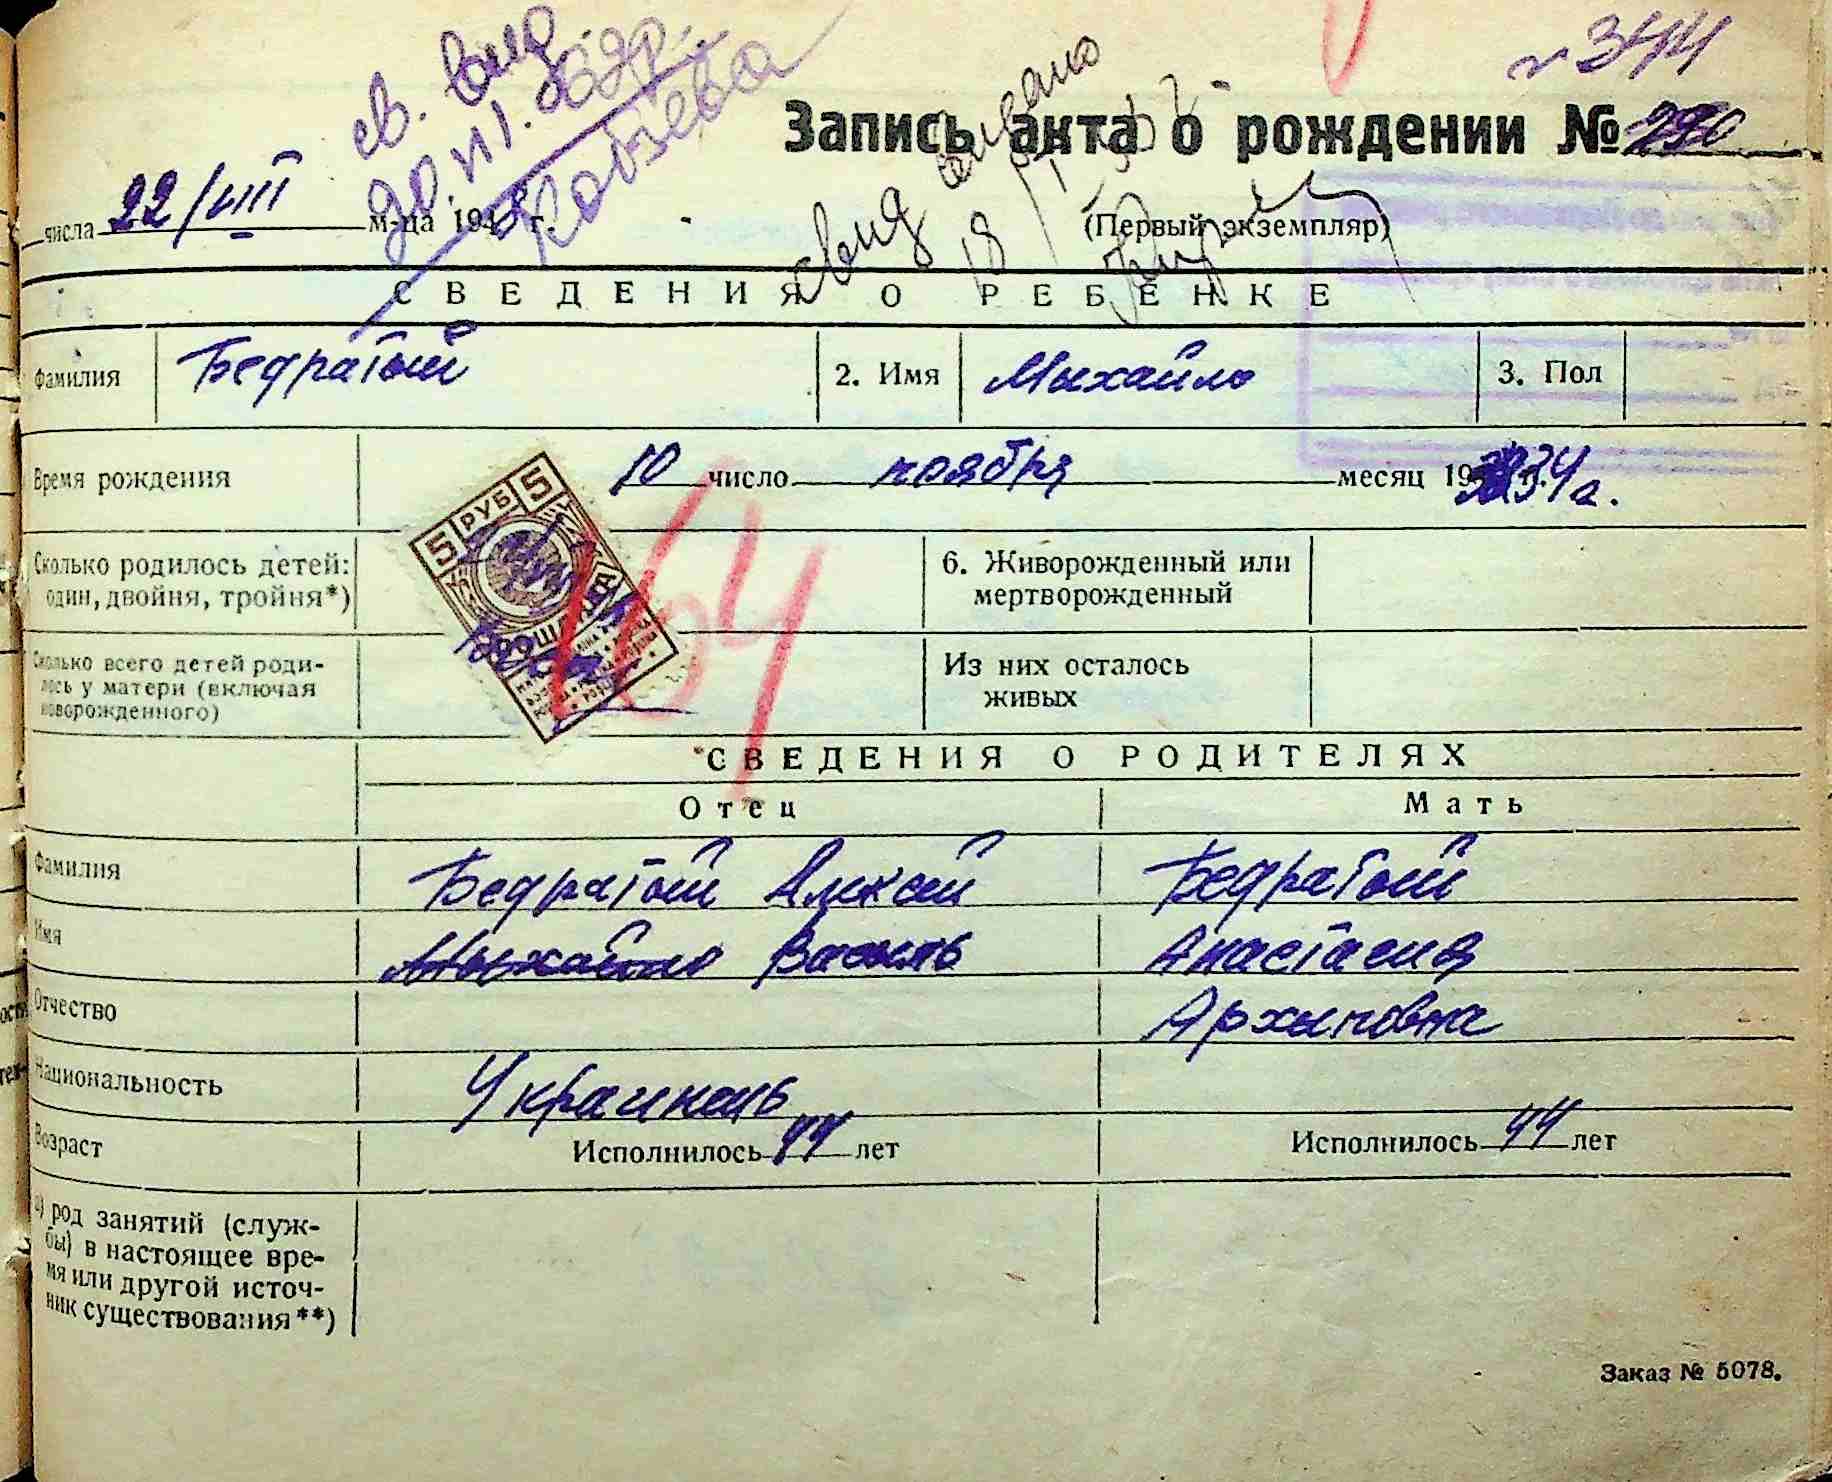 № 344
св. выд
Запись акта о рождении № 290
числа 22/VIII м-ца 1948 г.
Кобзева
свид
(Первый экземпляр)
СВЕДЕНИЯ О РЕБЕНКЕ
Фамилия Бедратый 2. Имя Мыхайло 3. Пол
Время рождения 10 число ноября месяц 1934 г.
Сколько родилось детей: один, двойня, тройня*)
6. Живорожденный или мертворожденный
5 РУБ 5
164
Сколько всего детей родилось у матери (включая новорожденного)
Из них осталось живых
СВЕДЕНИЯ О РОДИТЕЛЯХ
Отец Мать
Фамилия Бедратый Алексей Бедратый
Имя Мыхайло Василь Анастасия
Отчество Архыповна
Национальность Украинець
Возраст Исполнилось 44 лет Исполнилось 44 лет
а) род занятий (служ-
бы) в настоящее вре-
мя или другой источ-
ник существования**)
Заказ № 5078.